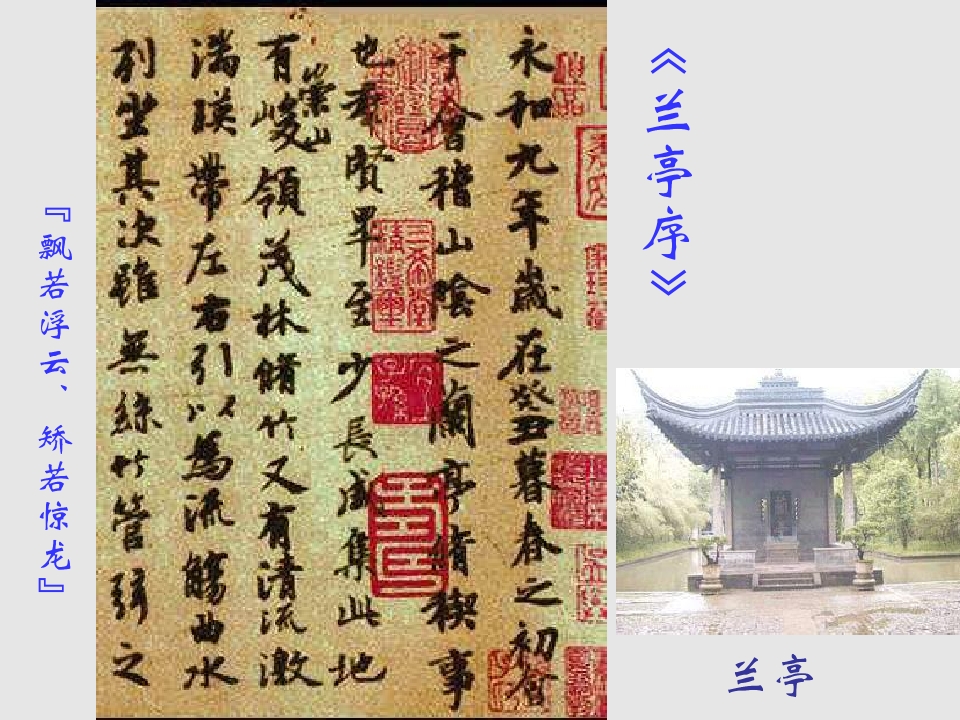 《兰亭序》
永和九年歲在癸丑暮春之初會
于會稽山陰之蘭亭脩禊事
也羣賢畢至少長咸集此地
有崇山峻領茂林脩竹又有清流激
湍暎帶左右引以為流觴曲水
列坐其次雖無絲竹管弦之
『飘若浮云、矫若惊龙』
兰亭